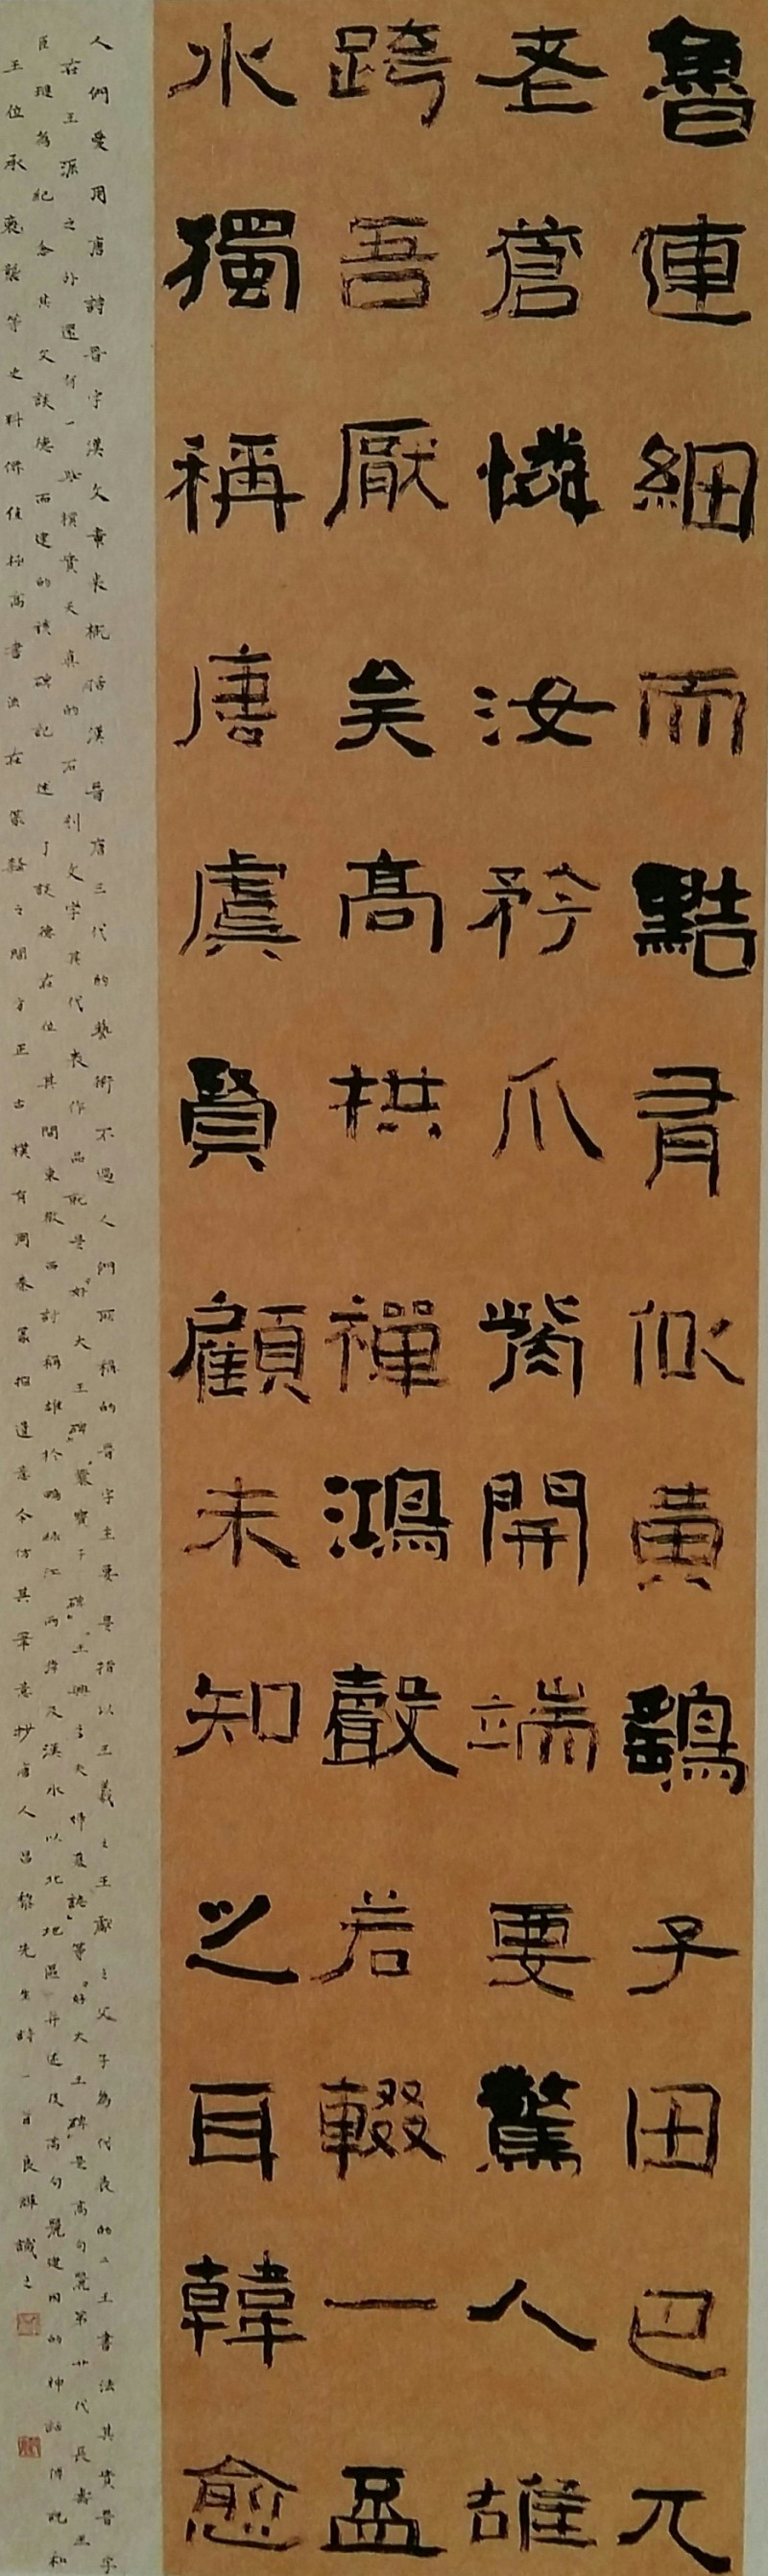 魯連細而黠有似黃鷂子田巴兀
老蒼憐汝矜爪觜開端要驚人雄
跨吾厭矣高拱禪鴻聲若輟一盃
水獨稱唐虞賢顧未知之耳韓愈
人們愛用唐詩晋字漢文章來概括漢晋唐三代的藝術不過人們所稱的晋字主要是指以王羲之王獻之父子為代表的二王書法其實晋字
右王派之外還有一路樸實天真的石刻文字其代表作品就是"好大王碑""爨寶子碑""王興之夫婦墓誌"等"好大王碑"是高句麗第廿代長壽王
巨璉為紀念其父談德而建的該碑記述了談德在位其間東征西討稱雄於鴨綠江兩岸及漢水以北地區并述及高句麗建國的神話傳說和
王位承襲等史料價值極高書法在篆隸之間方正古樸有周秦篆籀遺意今仿其筆意抄唐人昌黎先生詩一首良雄識之